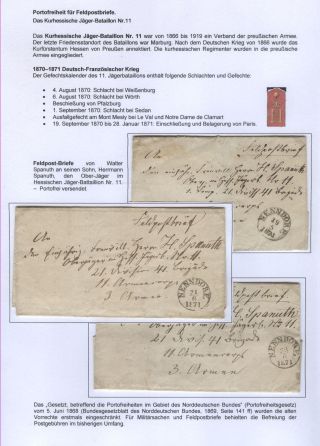 Portofreiheit für Feldpostbriefe.
Das Kurhessische Jäger-Bataillon Nr.11
Das Kurhessische Jäger-Bataillon Nr. 11 war von 1866 bis 1919 ein Verband der preußischen Armee.
Der letzte Friedensstandort des Bataillons war Marburg. Nach dem Deutschen Krieg von 1866 wurde das
Kurfürstentum Hessen von Preußen annektiert. Die kurhessischen Regimenter wurden in die preußische
Armee eingegliedert.
1870–1871 Deutsch-Französischer Krieg
Der Gefechtskalender des 11. Jägerbataillons enthält folgende Schlachten und Gefechte:
• 4. August 1870: Schlacht bei Weißenburg
• 6. August 1870: Schlacht bei Wörth
• Beschießung von Pfalzburg
• 1. September 1870: Schlacht bei Sedan
• Ausfallgefecht am Mont Mesly bei Le Val und Notre Dame de Clamart
• 19. September 1870 bis 28. Januar 1871: Einschließung und Belagerung von Paris.
Feldpost-Briefe von Walter
Spanuth an seinen Sohn, Herrmann
Spanuth, den Ober-Jäger im
Hessischen Jäger-Bataillion Nr. 11.
– Portofrei versendet.
Feldpostbrief
An
H. Spanuth
11
21 Division 41 Brigade
11 Armeecorps
3. Armee
NENNDORF
1871
Feldpostbrief
An
den Herrn H. Spanuth
Oberjäger 11
21 Division 41 Brigade
11 Armeecorps
3 Armee
NENNDORF
1871
Feldpostbrief
Spanuth
11
21 Div 41 Brigade
11 Armeecorps
3. Armee
NENNDORF
1871
Das „Gesetz, betreffend die Portofreiheiten im Gebiet des Norddeutschen Bundes" (Portofreiheitsgesetz)
vom 5. Juni 1868 (Bundesgesetzblatt des Norddeutschen Bundes, 1869, Seite 141 ff) wurden die alten
Vorrechte erstmals eingeschränkt. Für Militärsachen und Feldpostbriefe behielten die Befreiung der
Postgebühren im bisherigen Umfang.